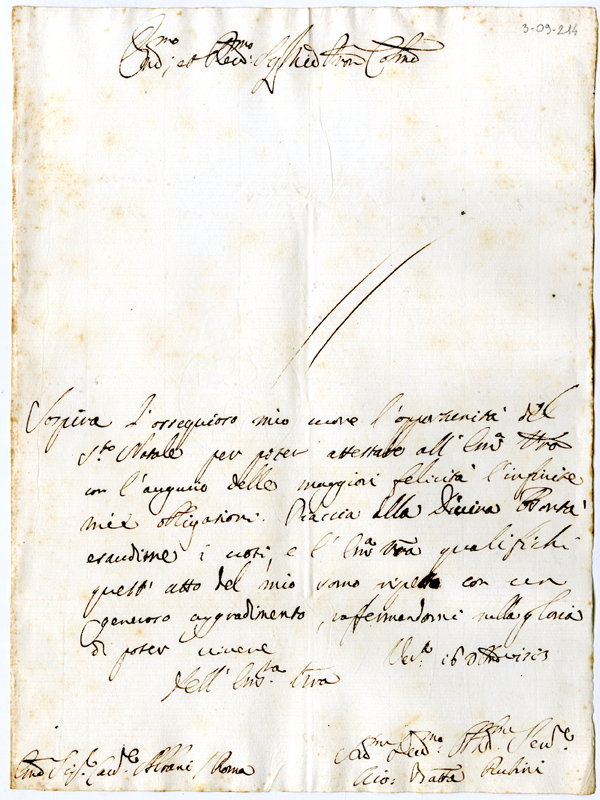 3-09-214
Em:mo et Rev:mo Sig:
Sospira l'ossequioso mio cuore l'opportunità del
S:to Natale per poter attestare all' Em:a Vra
con l'augurio delle maggiori felicità l'infinite
mie obligationi. Piaccia alla Divina Bontà
esaudirne i voti, e l' Em:a Vra qualifichi
quest' atto del mio sommo rispetto con un
generoso aggradimento, raffermandomi nella gloria
di poter vivere
Dell' Em:za Vra
Ven:a 16
Em:o Sig:r Card:le Albani / Roma
Gio: Batta Rubini